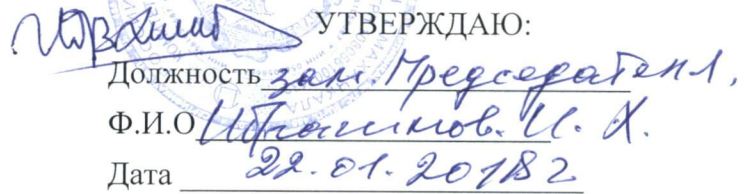 УТВЕРЖДАЮ:
Должность зам. Председателя,
Ф.И.О Ибрагимов. И. Х.
Дата 22.01.2018г